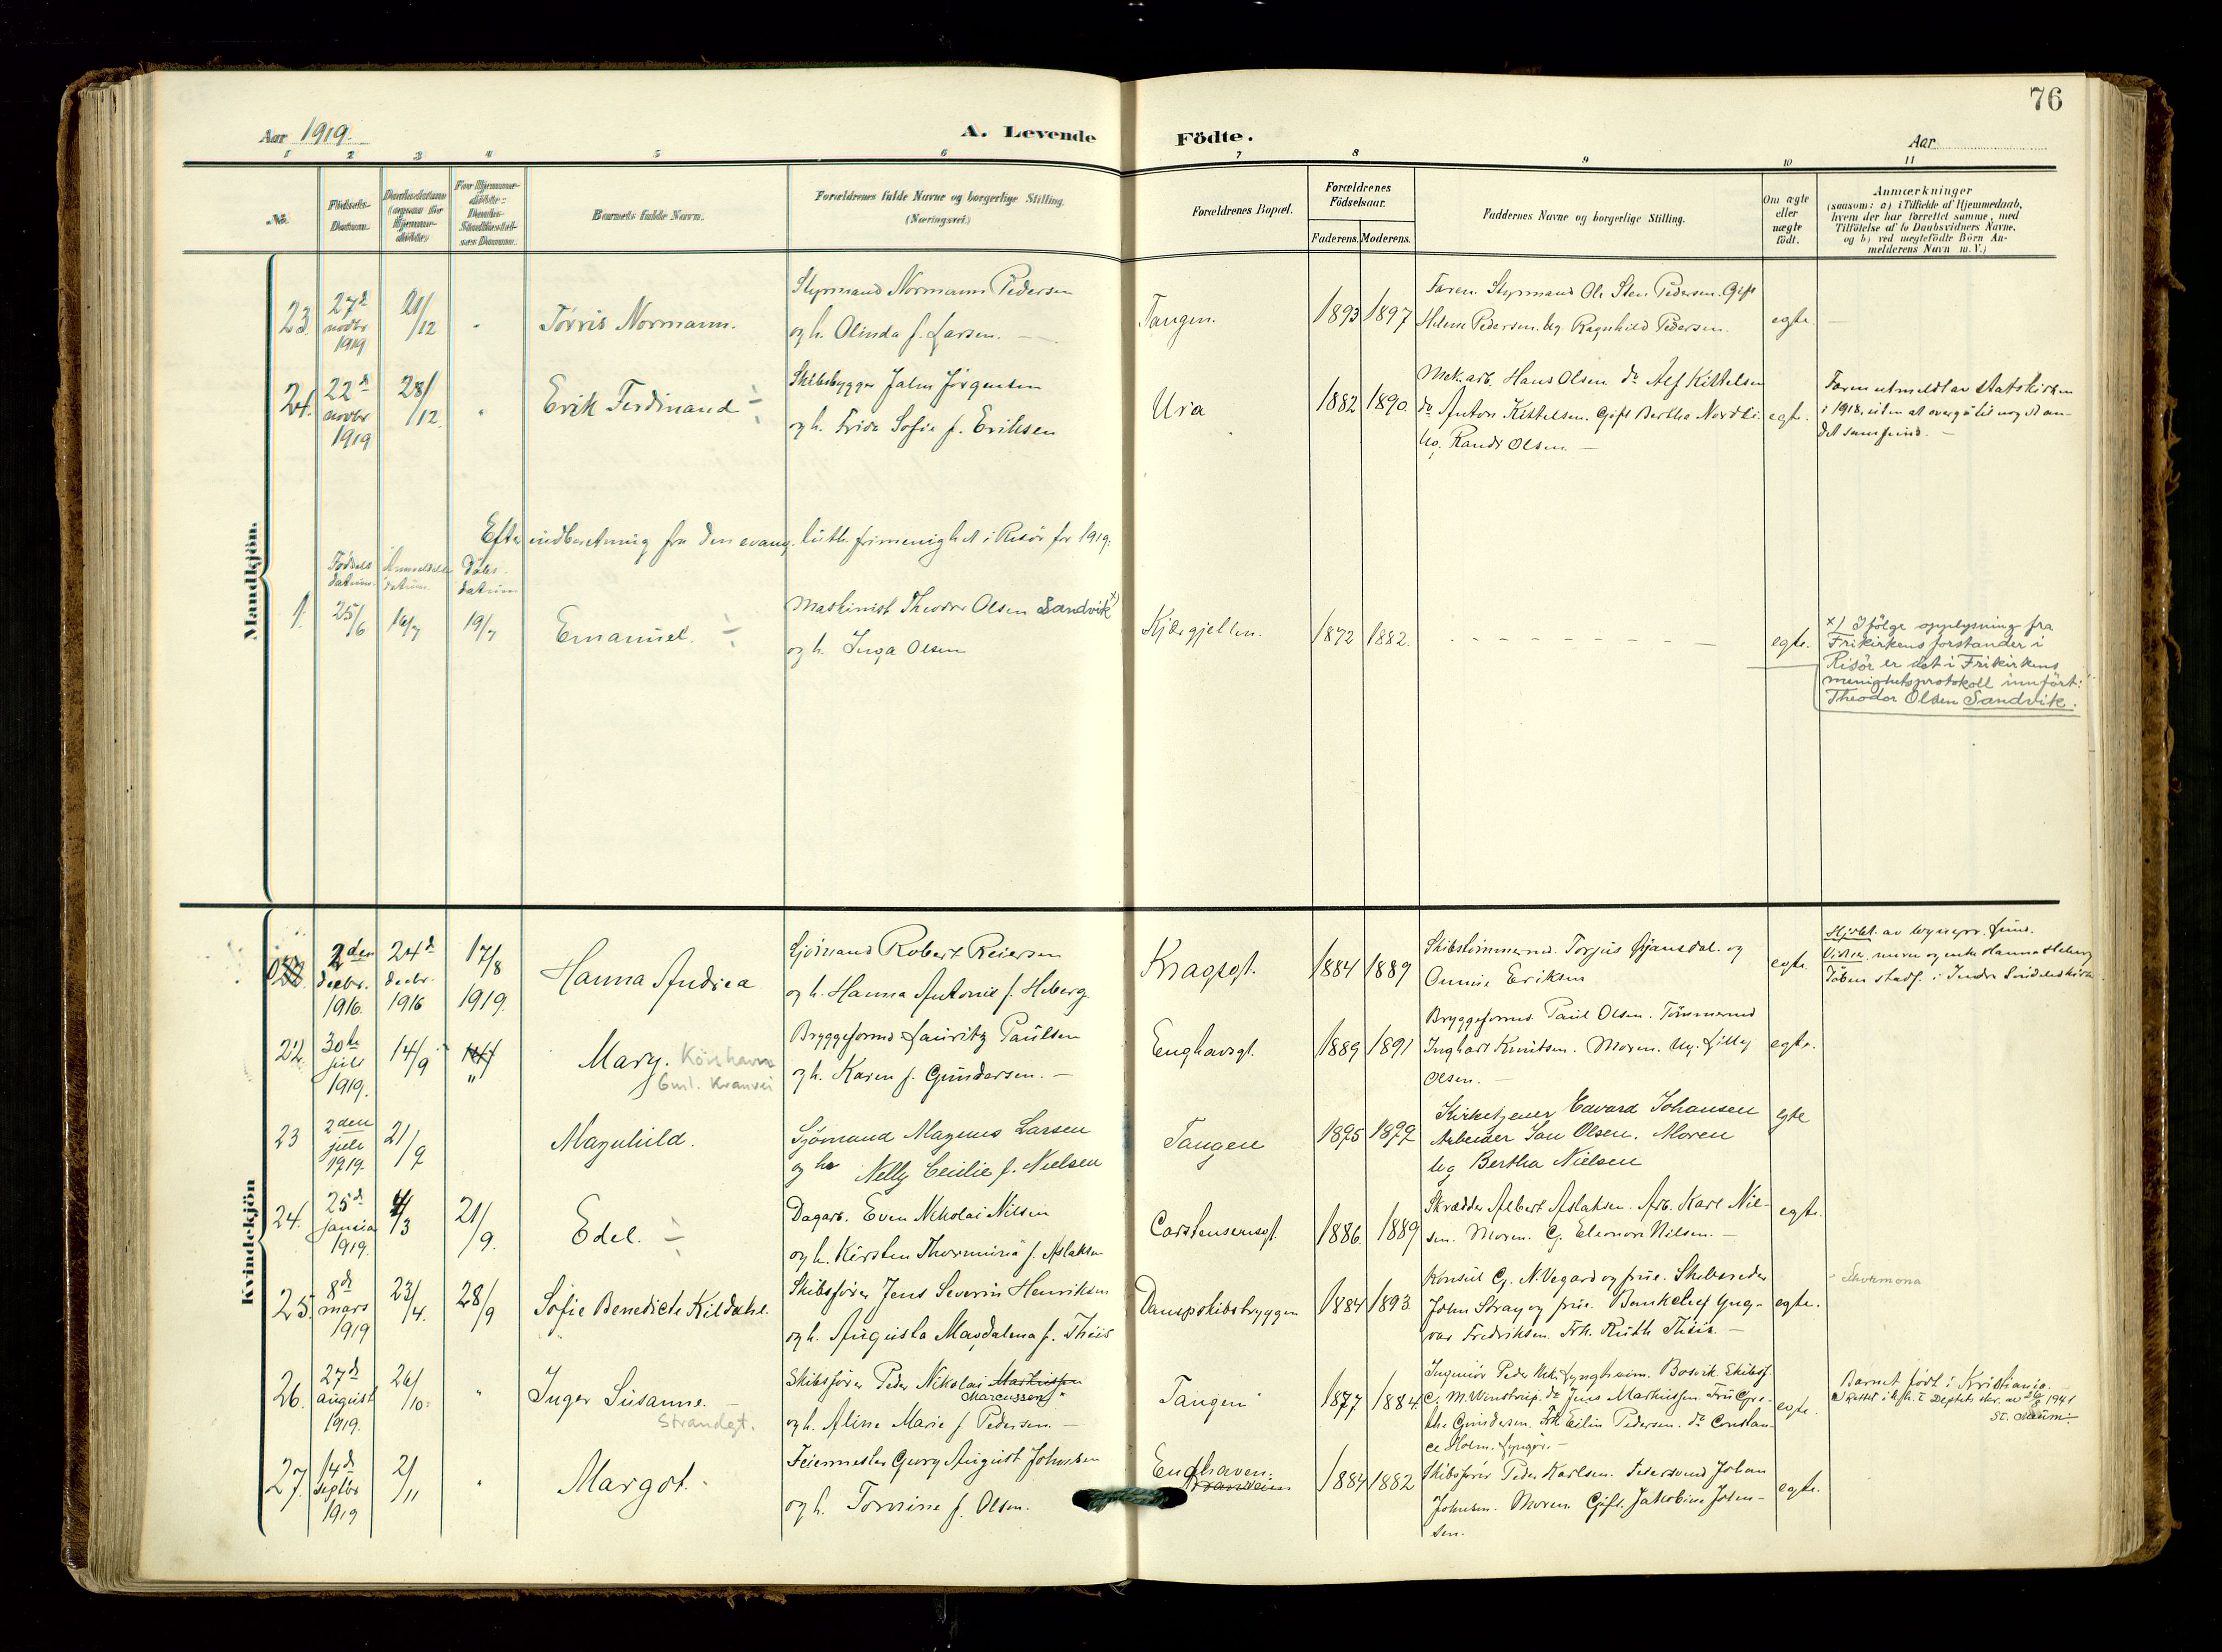 76
Aar 1919.
A. Levende
Födte.
Aar
1 2 3 4 5 6 7 8 9 10 11
No.
Födsels-
Datum.
Daabsdatum
(ogsaa for
Hjemme-
döbte)
For Hjemme-
döbte:
Daabs-
Stadfæstel-
ses Datum.
Barnets fulde Navn.
Forældrenes fulde Navne og borgerlige Stilling
(Næringsvei.)
Forældrenes Bopæl.
Forældrenes
Födselsaar.
Faderens. Moderens.
Faddernes Navne og borgerlige Stilling.
Om ægte
eller
uægte
födt.
Anmærkninger
(saasom: a) i Tilfælde af Hjemmedaab,
hvem der har forrettet samme, med
Tilföielse af to Daabsvidners Navne,
og b) ved uægtefödte Börn An-
melderens Navn m. V.)
Mandkjön.
23. 27d novbr 1919 21/12 "
Tørris Normann.
Styrmand Normann Pedersen
og h. Olinda f. Larsen. —
Tangen.
1893 1897
Faren. Styrmand Ole Sten Pedersen. Gift
Helene Pedersen. Ug. Ragnhild Pedersen.
egte.
24. 22d novbr 1919 28/12 "
Erik Ferdinand
Skibsbygger Jalm Jørgensen
og h. Frida Sofie f. Eriksen
Ura
1882 1890.
Mek. arb. Hans Olsen. do Alf Kittelsen
do Anton Kittelsen. Gift Bertha Nordli.
Ug. Randi Olsen. —
egte.
Faren utmeldt av statskirken
i 1918, uten at overgå til noget an-
det samfund. —
Efter indberetning fra den evang. luth. frimenighet i Risør for 1919.
Fødsels datum. Anmeldelses datum Dåbs- datum
1. 25/6 16/7 19/7
Emanuel.
Maskinist Theodor Olsen Sandvik x)
og h. Inga Olsen
Kjærgjellen.
1872 1882.
egte.
x) Ifölge opplysning fra
Frikirkens forstander i
Risör er det i Frikirkens
menighetsprotokoll innfört:
Theodor Olsen Sandvik.
Kvindekjön
2den decbr. 1916. 24d decbr. 1916 17/8 1919.
Hanna Andrea
Sjömand Robert Reiersen
og h. Hanna Antonie f. Heberg.
Kragsgt.
1884 1889
Skibstömmermd. Torjus Gjansdal. og
Oumie Eriksen
egte.
Hjdbt. av
Vidner. moren og enke Hanna Heberg
Dåben stadf. i Indre Söndeled kirke.
22. 30te juli 1919. 14/9 "
Mary. Körshavn
Gml. Kranvei
Bryggeformd Lauritz Paulsen
og h. Karen f. Gundersen. —
Enghavsgt.
1889 1891
Bryggeformd. Paul Olsen. Tömmermd
Inghart Knutsen. Moren. Ug. Lilly
Olsen. —
egte.
23 2den juli 1919. 21/9
Magnhild.
Sjömand Magnus Larsen
og h Nelly Cecilie f. Nielsen
Tangen
1895 1899
Kirketjener Edvard Johansen
Arbeider Jan Olsen. Moren
Ug Bertha Nielsen
egte
24. 25d januar 1919. 4/3 21/9.
Edel.
Dagarb. Even Nikolai Nilsen
og h. Kirsten Thormina f. Aslaksen
Carstensensgt.
1886. 1889
Skrædder Albert Aslaksen. Arb. Karl Nil-
sen. Moren. G. Eleonore Nilsen. —
egte.
25. 8de mars 1919 23/4. 28/9
Sofie Benedicte Kildahl.
Skibsfører Jens Severin Henriksen
og h. Augusta Magdalena f. Thiis
Dampskibsbryggen
1884 1893.
Konsul G. N. Vegard og frue. Skibsreder
John Stray og frue. Bankchef Yng-
var Fredriksen. Frk. Ruth Thiis. —
egte.
26. 27d august 1919. 26/10. "
Inger Susanne. —
Strandgt.
Skibsfører Peder Nikolai Markussen
Marcussen)
og h. Aline Marie f. Pedersen. —
Tangen
1877 1884.
Ingeniør Peder Nik. Lyngheim. Bosvik. Skibsf.
C. M. Winstrup. do Jens Markussen. Fru Gre-
the Gundersen. Frk Eilin Pedersen. do Constan-
ce Holm. Lyngør. —
egte.
Barnet født i Kristiania.
27. 14d septbr 1919 2/11 "
Margot.
Feiermester Georg August Johnsen
og h. Tomine f. Olsen.
Enghaven.
1884 1882
Skibsfører Peder Karlsen. Feiersvend Johan
Johnsen. Moren. Gift. Jakobine John-
sen.
egte.